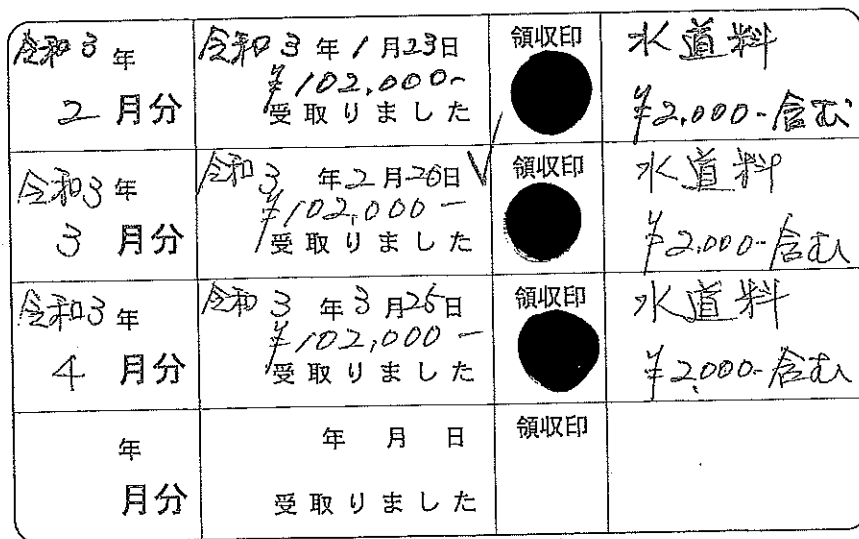 令和3年
2月分
令和3年1月23日
¥102,000-
受取りました
領収印
水道料
¥2,000-含む
令和3年
3月分
令和3年2月26日
¥102,000-
受取りました
領収印
水道料
¥2,000-含む
令和3年
4月分
令和3年3月25日
¥102,000-
受取りました
領収印
水道料
¥2,000-含む
年
月分
年 月 日
受取りました
領収印